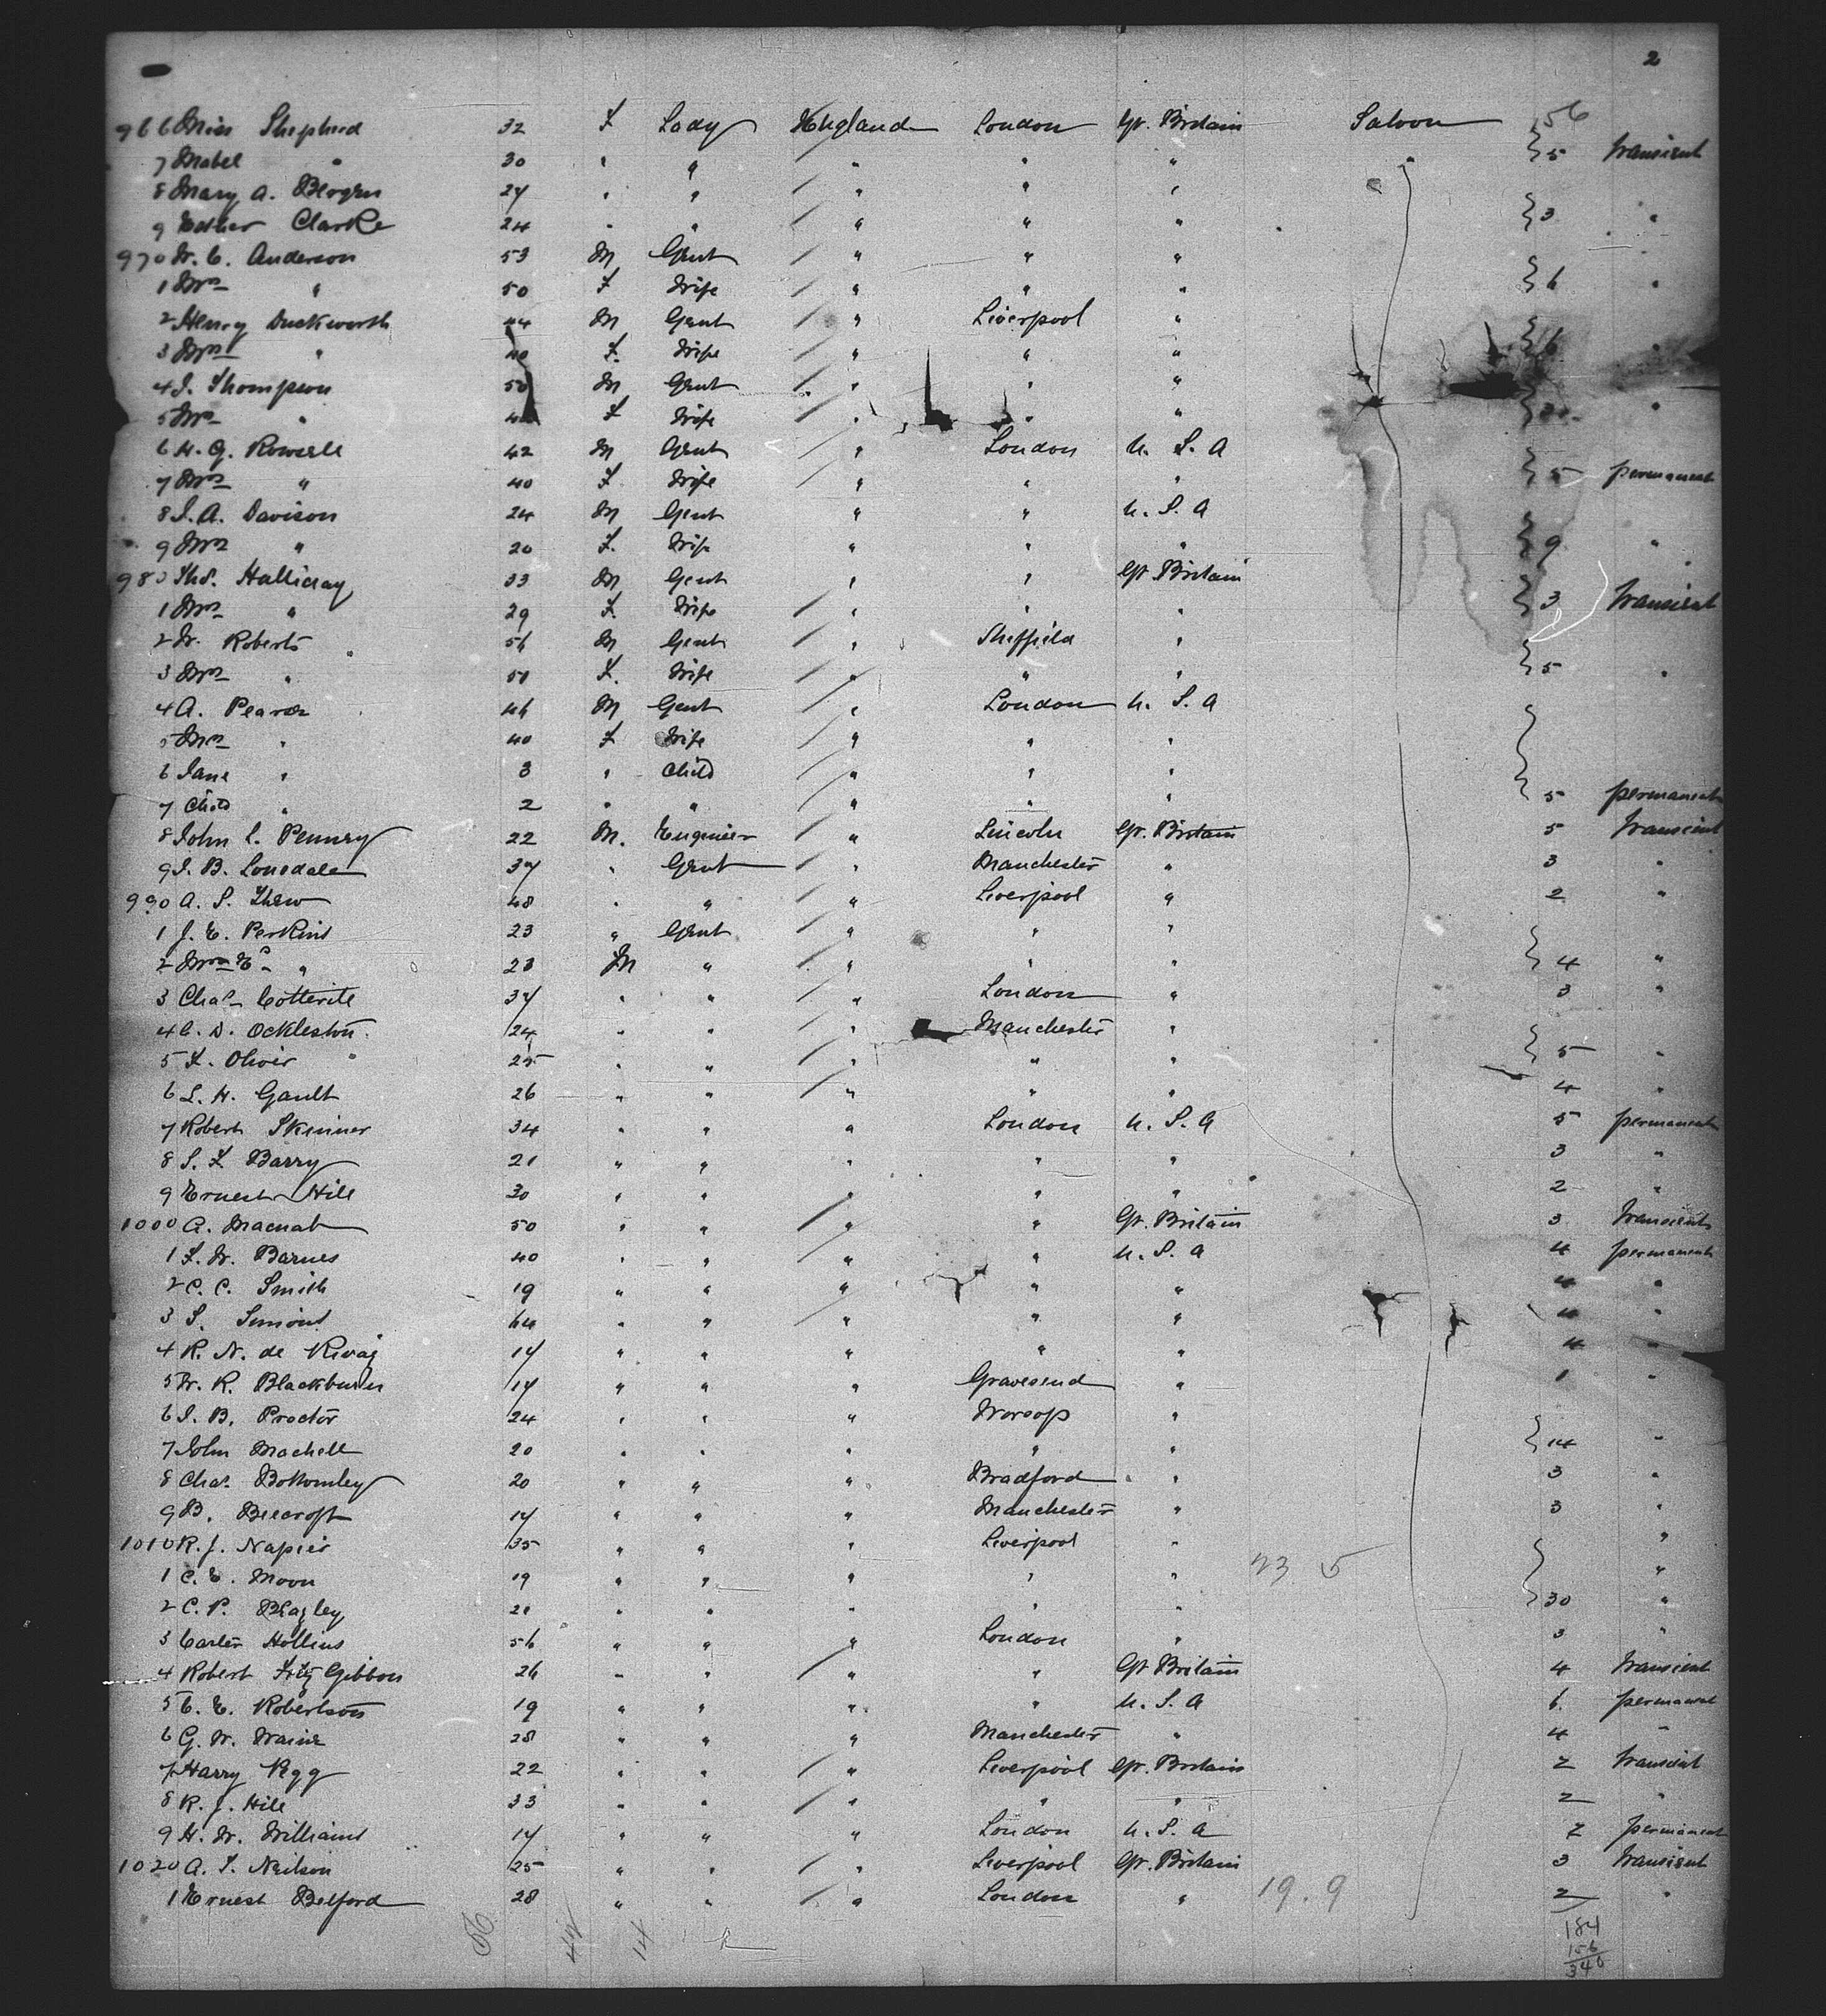 2
56
966 Miss Shepherd 32 F Lady England London Gr. Britain Saloon
7 Mabel " 30 " " " " " " 5 transient
8 Mary A. 27 " " " " "
9 Esther Clarke 24 " " " " " 3 "
970 W. C. Anderson 53 M Gent " " "
1 Mrs " 50 F Wife " " " 6 "
2 Henry Duckworth 44 M Gent " Liverpool "
3 Mrs " 40 F. Wife " " " 6 "
4 J. Thompson 50 M Gent " " "
5 Mrs " F Wife " " " "
6 H. G. 42 M Gent " London U. S. A
7 Mrs " 40 F Wife " " " 5 permanent
8 J. A. Davison 24 M Gent " " U. S. A
9 Mrs " 20 F. Wife " " " 9 "
980 Thos. Halliday 33 M Gent " " Gr. Britain
1 Mrs " 29 F. Wife " " " 3 transient
2 W. Roberts 56 M Gent " Sheffield "
3 Mrs " 51 F. Wife " " " 5 "
4 A. Pearce 46 M Gent " London U. S. A
5 Mrs " 40 F Wife " " "
6 Jane " 3 " Child " " "
7 Child " 2 " " " " " 5 permanent
8 John L. Penney 22 M. Engineer " Lincoln Gr. Britain 5 transient
9 J. B. Lonsdale 37 " Gent " Manchester " 3 "
990 A. S. Thew 48 " " " Liverpool " 2 "
1 J. E. Perkins 23 " Gent " " "
2 Wm E. " 23 M " " " " 4 "
3 Chas. Cotterile 37 " " " London " 3 "
4 C. D. Ockleston 24 " " " Manchester "
5 F. Oliver 25 " " " " " 5 "
6 L. H. Gault 26 " " " " " 4 "
7 Robert Skinner 34 " " " London U. S. A 5 permanent
8 S. F. Barry 21 " " " " " 3 "
9 Ernest Hill 30 " " " " " 2 "
1000 A. Macnab 50 " " " " Gr. Britain 3 transient
1 F. W. Barnes 40 " " " " U. S. A 4 permanent
2 C. C. Smith 19 " " " " " 4 "
3 S. Simons 64 " " " " " 4 "
4 R. N. de 17 " " " " " 4 "
5 W. R. Blackburn 17 " " " Gravesend " 1 "
6 J. B. Proctor 24 " " " Worsop "
7 John Machell 20 " " " " 14 "
8 Chas. Bottomley 20 " " " Bradford " 3 "
9 B. Beecroft 17 " " " Manchester " 3 "
1010 R. J. Napier 35 " " " Liverpool " "
1 C. E. Moon 19 " " " " " 23 5 "
2 C. P. Blagley 21 " " " " " 30 "
3 Carter Hollins 56 " " " London " 3 "
4 Robert Fitz Gibbon 26 " " " " Gr Britain 4 transient
5 C. E. Robertson 19 " " " " U. S. A 6 permanent
6 G. W. 28 " " " Manchester " 4 "
7 Harry Rgg 22 " " " Liverpool Gr. Britain 2 transient
8 R. J. Hill 33 " " " " " 2 "
9 H. W. Williams 17 " " " London U. S. A 2 permanent
1020 A. T. Neilson 25 " " " Liverpool Gr. Britain 3 transient
1 Ernest Belford 28 " " " London " 19.9 2 "
56 42 14
184
156
340